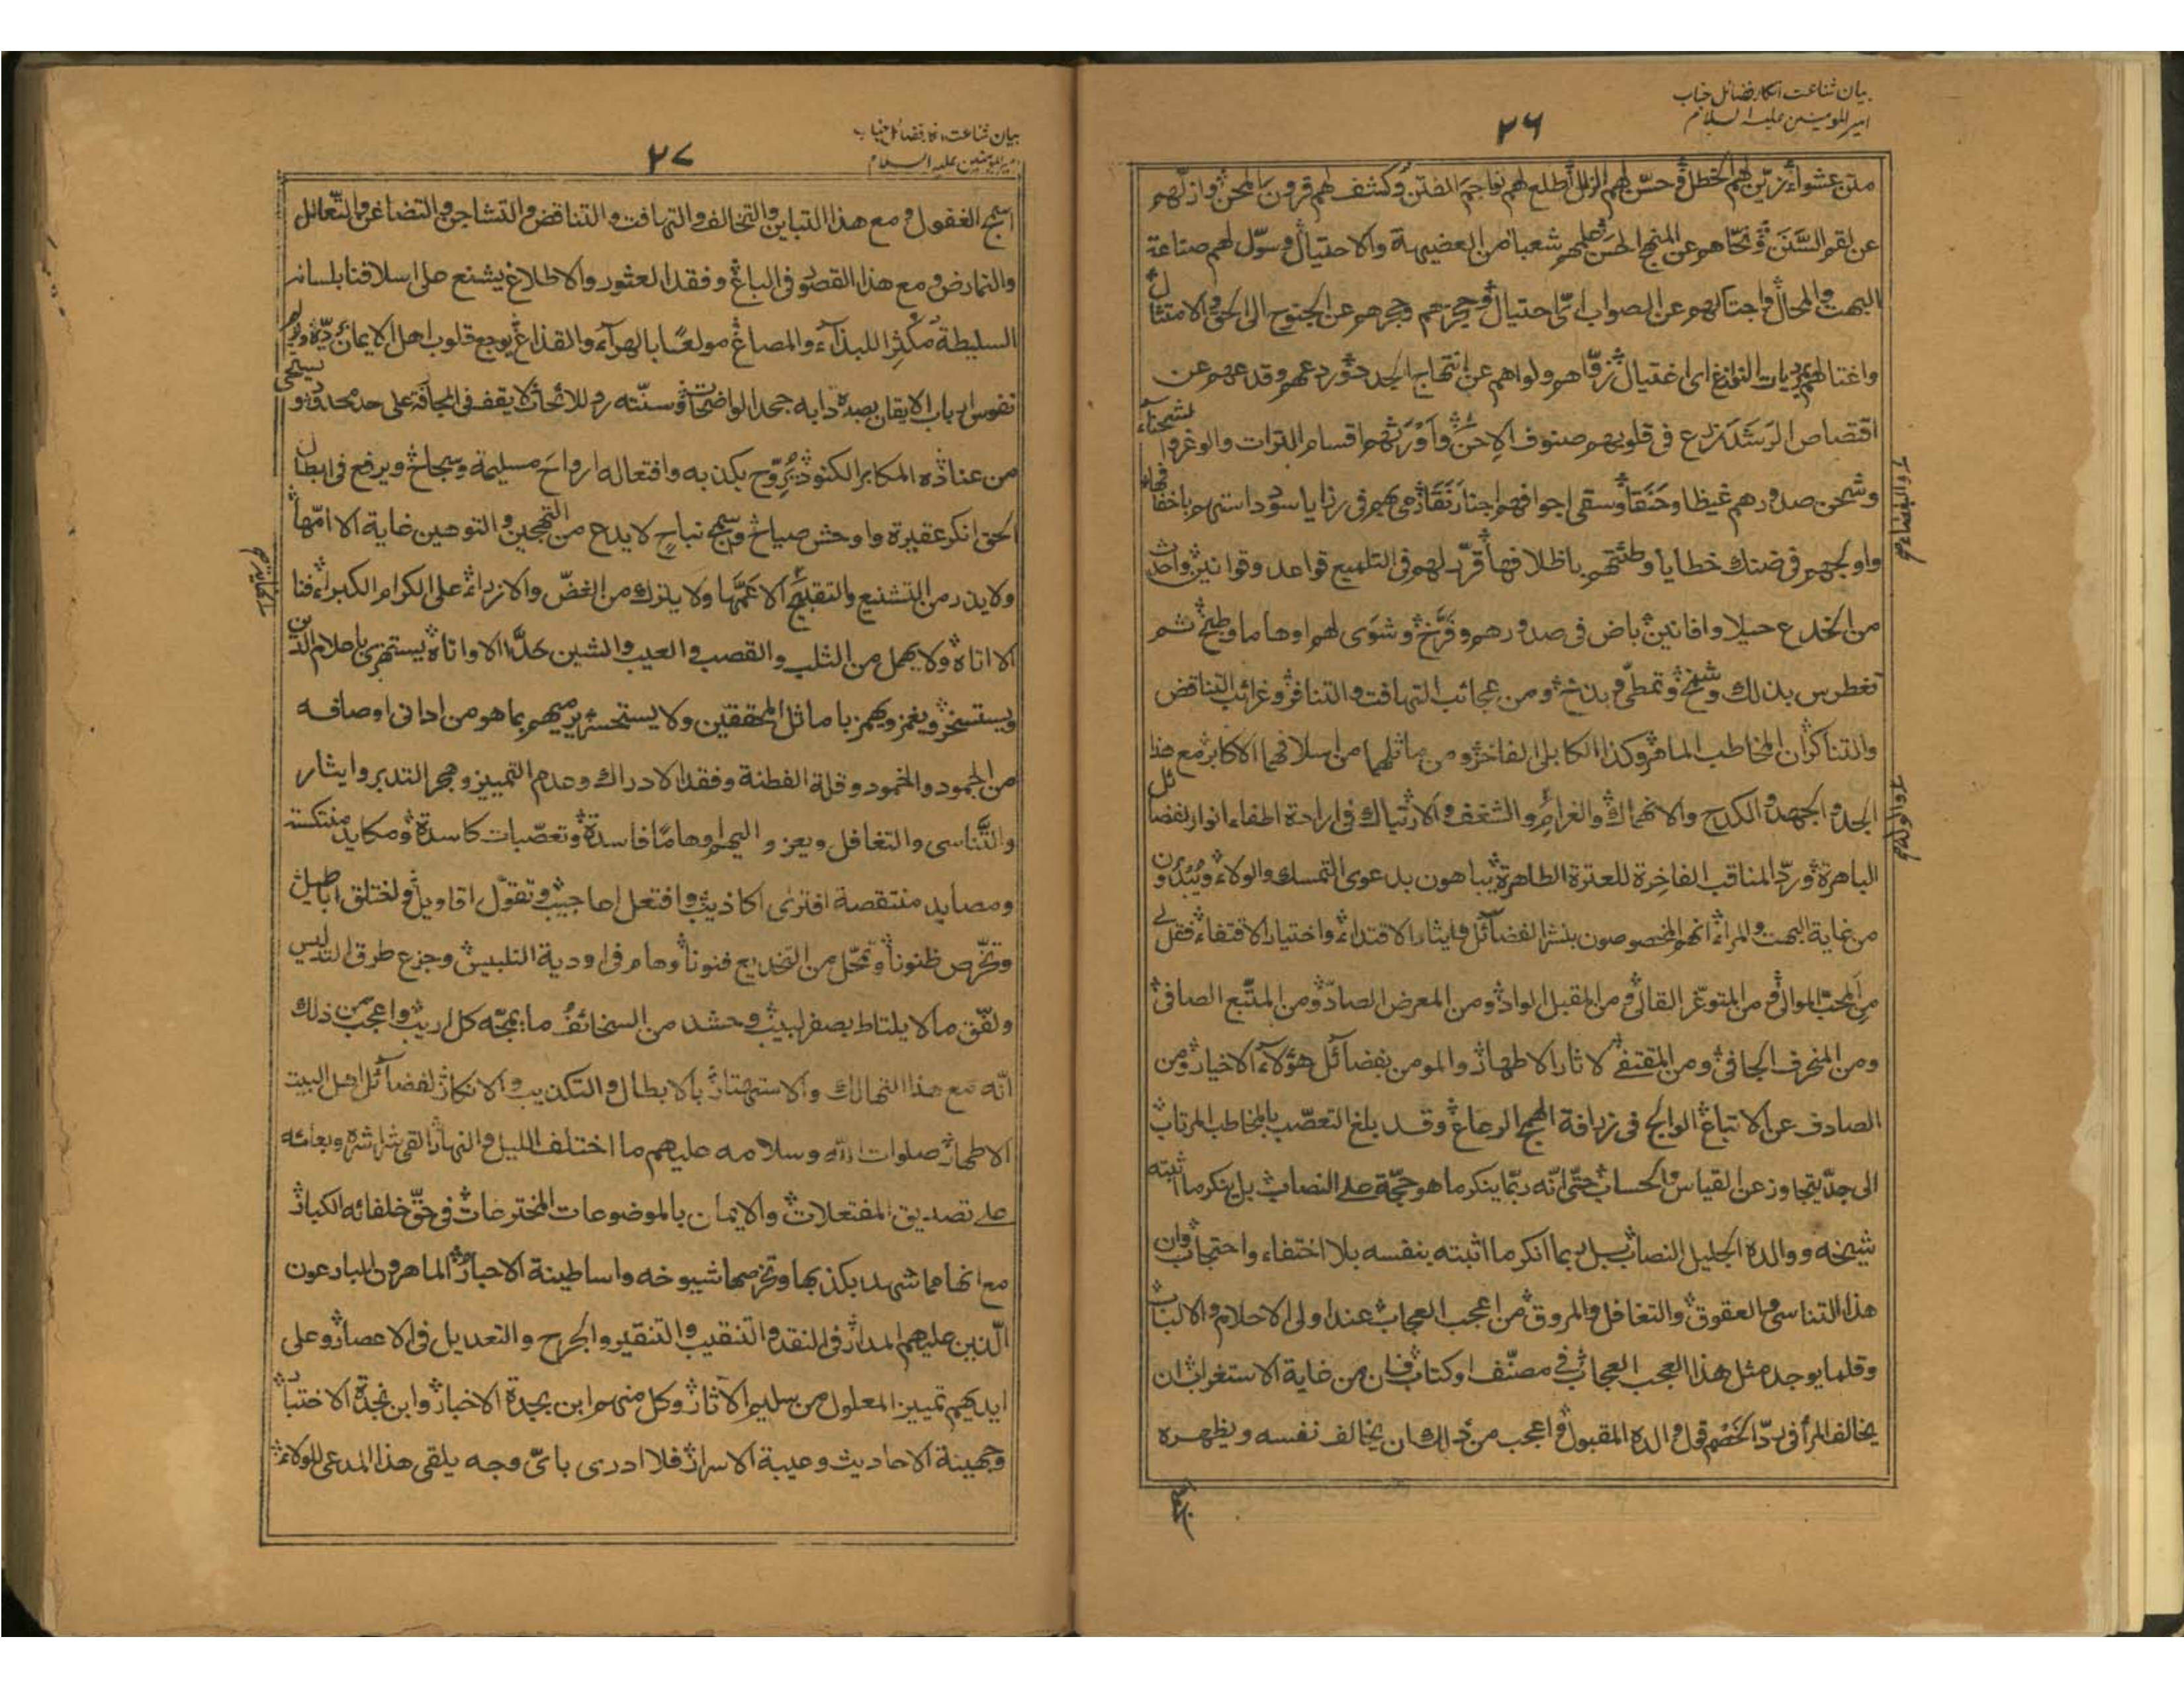 بیان شناعت انکار فضائل جناب
امیر المومنین علیہ السلام
۲۶
متن عشواء زيّن لهم الخطل وحسّن لهم الزلل أطلع لهم نواجم الفتن وكشف لهم قرون المحن وازلّهم
عن لقم السَّنَن ونحّاهم عن المنهج الحسن علمهم شعبا من العضيهة والاحتيال وسوّل لهم صناعة
البهت والمحال واجتالهم عن الصواب ایّ احتيال وحجزهم وحجرهم عن الجنوح الى الحق والامتثال
واغتالهم بديات النوازغ ای اغتيال زقّاهم ولواهم عن انتهاج الجدد وردعهم وقدعهم عن
اقتصاص الرشد زرع فی قلوبهم صنوف الإحن وأورثهم اقسام الترات والوغر والشحناء
وشحن صدورهم غيظا وحَنَقا وسقى اجوافهم رَنَقا رمى بهم فی رزايا سود استهم باخفافها
واولجهم فی ضنك خطايا وطئتهم باظلافها قرّر لهم فی التلميع قواعد وقوانين واحدث
من الخدع حيلا وافانين باض فی صدورهم وفَرَّخ وشَوى لهم اوهاما وطبخ ثم
تغطرس بذلك وشمخ وتمطّى وبذخ ومن عجائب التهافت والتنافر وغرائب التناقض
والتناكر ان المخاطب الماهر وكذا الكابلى الفاخر ومن ماثلهما من اسلافهما الاكابر مع هذا
الجد والجهد والكدح والانهماك والغرام والشغف والارتباك فی اراحة اطفاء انوار الفضائل
الباهرة ورد المناقب الفاخِرة للعترة الطاهرة يباهون بدعوى التمسك والولاء ويُبدون
من غاية البهت والمراء انهم المخصوصون بنشر الفضائل وايثار الاقتداء واختيار الاقتفاء فقل لی
مِن المحبّ الموالی ومن المتوغّر القالی ومن المقبل الوادّ ومن المعرض الصادّ ومن المتّبع الصافی
ومن المنحرف الجافی ومن المقتفی لاثار الاطهار والمومن بفضائل هؤلاء الاخيار ومن
الصادف عن الاتباع الوالج فی زرافة الهمج الرعاع وقد بلغ التعصّب بالمخاطب المرتاب
الى حدّ يتجاوز عن القياس والحساب حتّى انّه ربّما ينكر ما هو حجّة على النصاب بل ينكر ما اثبته
شيخه ووالده الجليل النصاب بل ربما انكر ما اثبته بنفسه بلا اختفاء واحتجاب وان
هذا التناسی والعقوق والتغافل والمروق من اعجب العجاب عند اولی الاحلام والالباب
وقلما يوجد مثل هذا العجب العجاب فی مصنّف او كتاب فان من غاية الاستغراب ان
يخالف المرأ فی ردّ الخصم قول والده المقبول واعجب من ذلك ان يخالف نفسه ويظهره
بیان شناعت انکار فضائل جناب
امیر المومنین علیہ السلام
۲۷
اسمج الغفول ومع هذا التباين والتخالف والتهافت والتناقض والتشاجر والتضاغن والتعالل
والتمارض ومع هذا القصور فی الباع وفقد العثور والاطلاع يشنع على اسلافنا بلسانه
السليطة مُكْثِرا للبذاء والمصاغ مولعًا بالهراء والقذاع يوجع قلوب اهل الايمان
نفوس ارباب الايقان بصده دابه جحد الواضحات وسنّته رد اللائحات لا يقف فی المجافة على حد محدود
من عناده المكابر الكنود يُرَوّح بكذبه وافتعاله ارواح مسيلمة وسجاح ويرفع فی ابطال
الحق انكر عقيرة واوحش صياح وسمج نباح لا يدع من التهجين والتوهين غاية الا امّها
ولا يذر من التشنيع والتقبيح الا عَمَّها ولا يترك من الغضّ والازراء على الكرام الكبراء فنا
الا اتاه ولا يهمل من الثلب والقصب والعيب والشين حدّا الا واتاه يستهزئ باعلام الدين
ويستسخر ويغمز ويهمز باماثل المحققين ولا يستحسر يرميهم بما هو من ادانی اوصافه
من الجمود والخمود وقلة الفطنة وفقد الادراك وعدم التمييز وهجر التدبر وايثار
والتَّناسی والتغافل ويعزو اليهم اوهامًا فاسدة وتعصّبات كاسدة ومكايد منتكسة
ومصايد منتقصة افترى اكاذيب وافتعل اعاجيب وتقوّل اقاويل واختلق اباطيل
وتخرّص ظنونا وتمحّل من التخديع فنونا وهام فی اودية التلبيس وجزع طرق التدليس
ولفّق ما لا يلتاط بصفر لبيب وحشد من السخائف ما يمجّه كل اريب واعجب من ذلك
انّه مع هذا التهالك والاستهتار بالابطال والتكذيب والانكار لفضائل اهل البيت
الاطهار صلوات الله وسلامه عليهم ما اختلف الليل والنهار القى شراشره وبعاعه
على تصديق المفتعلات والايمان بالموضوعات المخترعات فی حقّ خلفائه الكبار
مع انها مما شهد بكذبها وتخرصها شيوخه واساطينة الاحبار الماهرون البارعون
الّذين عليهم المدار فی النقد والتنقيب والتنقير والجرح والتعديل فی الاعصار وعلى
ايديهم تمييز المعلول من سليم الآثار وكل منهم ابن بجدة الاخبار وابن نجدة الاختبار
وجهينة الاحاديث وعيبة الاسرار فلا ادری بایّ وجه يلقى هذا المدعی للولاء